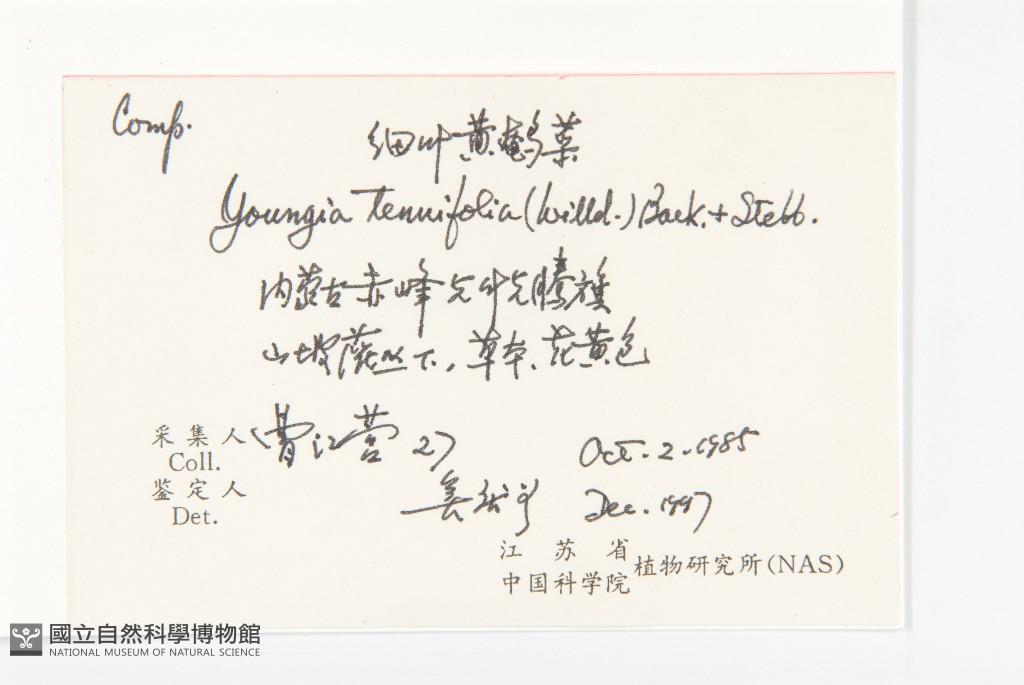 Comp.
细叶黄鹌菜
Youngia Tenuifolia (Willd.) Back. + Stebb.
内蒙古赤峰克什克腾旗
山坡蔭丛下,草本,花黄色
采集人 曾江营 27 Oct. 2. 1985
Coll.
鉴定人 Dec. 1997
Det.
江苏省
中国科学院 植物研究所(NAS)
國立自然科學博物館
NATIONAL MUSEUM OF NATURAL SCIENCE